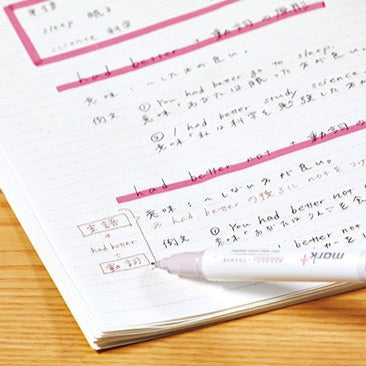 英語
sleep 眠る
science 科学
had better : 動詞の原形
意味 : ~した方が良い。
例文 ① You had better go to sleep.
意味 : あなたは眠った方が良い。
② I had better study science.
意味 : 私は科学を勉強した方が
had better not : 動詞の
意味 : ~しない方が良い。
※ had better の後ろに not を
例文 ① You had better not
意味 : あなたは
better not
主語
+
had better
+
動詞
mark+